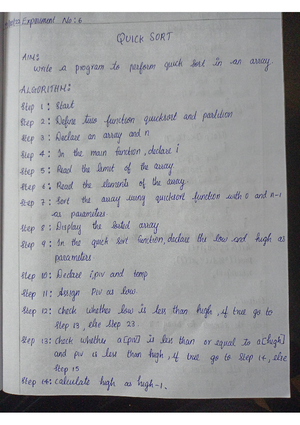 Experiment No: 6
QUICK SORT
AIM:
Write a program to perform quick sort in an array.
ALGORITHM:
Step 1: Start
Step 2: Define two function quicksort and partition
Step 3: Declare an array and n
Step 4: In the main function, declare i
Step 5: Read the limit of the array
Step 6: Read the elements of the array
Step 7: Sort the array using quicksort function with 0 and n-1
as parameters
Step 8: Display the sorted array
Step 9: In the quick sort function, declare the low and high as
parameters
Step 10: Declare i, piv and temp
Step 11: Assign piv as low.
Step 12: Check whether low is less than high, if true go to
Step 13, else Step 23.
Step 13: Check whether a[piv] is less than or equal to a[high]
and piv is less than high, if true go to Step 14, else
Step 15
Step 14: Calculate high as high-1.